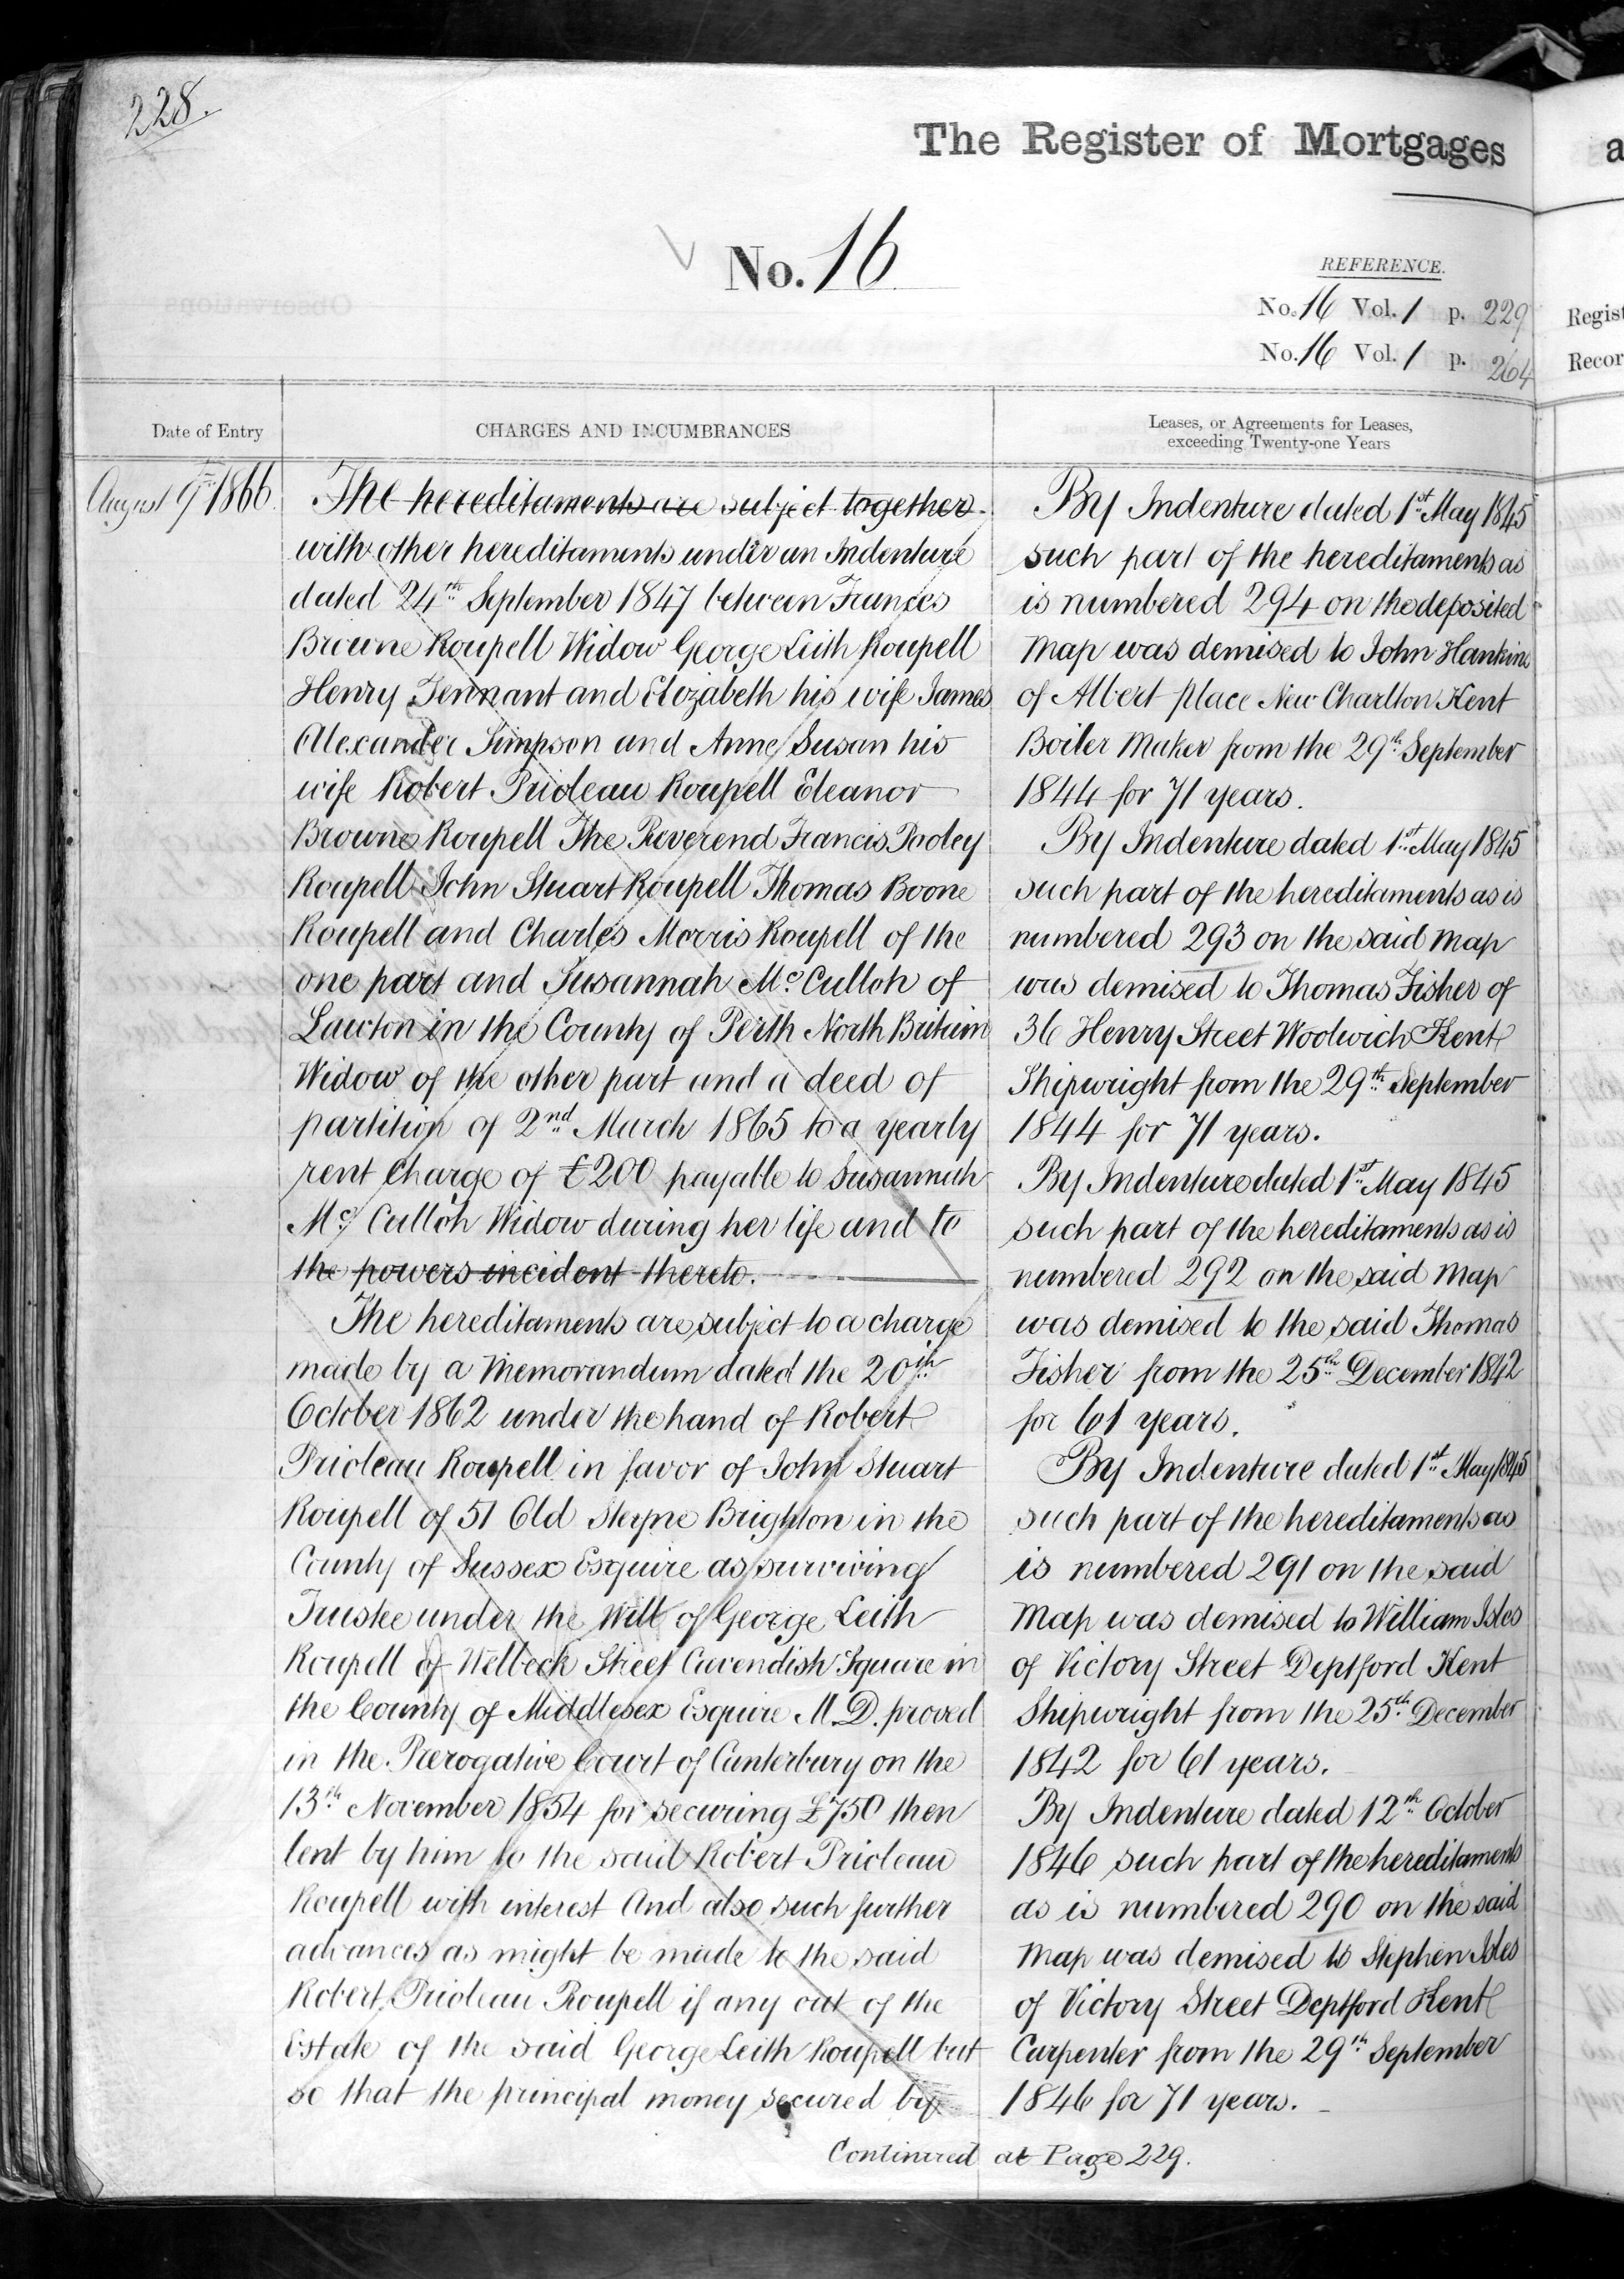 228.
The Register of Mortgages
No. 16
REFERENCE.
No. 16 Vol. 1 p. 229
No. 16 Vol. 1 p. 264
Date of Entry
CHARGES AND INCUMBRANCES
Leases, or Agreements for Leases,
exceeding Twenty-one Years
August 9th 1866.
The hereditaments are subject together
with other hereditaments under an Indenture
dated 24th September 1847 between Frances
Browne Roupell Widow George Leith Roupell
Henry Tennant and Elizabeth his wife James
Alexander Simpson and Anne Susan his
wife Robert Prioleau Roupell Eleanor
Browne Roupell The Reverend Francis Pooley
Roupell John Stuart Roupell Thomas Boone
Roupell and Charles Morris Roupell of the
one part and Susannah Mc. Culloh of
Lawton in the County of Perth North Britain
Widow of the other part and a deed of
partition of 2nd March 1865 to a yearly
rent charge of £200 payable to Susannah
Mc. Culloh Widow during her life and to
the powers incident thereto.
The hereditaments are subject to a charge
made by a Memorandum dated the 20th
October 1862 under the hand of Robert
Prioleau Roupell in favor of John Stuart
Roupell of 51 Old Steyne Brighton in the
County of Sussex Esquire as surviving
Trustee under the Will of George Leith
Roupell of Welbeck Street Cavendish Square in
the County of Middlesex Esquire M.D. proved
in the Prerogative Court of Canterbury on the
13th November 1854 for securing £750 then
lent by him to the said Robert Prioleau
Roupell with interest And also such further
advances as might be made to the said
Robert Prioleau Roupell if any out of the
Estate of the said George Leith Roupell but
so that the principal money secured by
By Indenture dated 1st May 1845
such part of the hereditaments as
is numbered 294 on the deposited
Map was demised to John Hankins
of Albert place New Charlton Kent
Boiler Maker from the 29th September
1844 for 71 years.
By Indenture dated 1st May 1845
such part of the hereditaments as is
numbered 293 on the said Map
was demised to Thomas Fisher of
36 Henry Street Woolwich Kent
Shipwright from the 29th September
1844 for 71 years.
By Indenture dated 1st May 1845
such part of the hereditaments as is
numbered 292 on the said Map
was demised to the said Thomas
Fisher from the 25th December 1842
for 61 years.
By Indenture dated 1st May 1845
such part of the hereditaments as
is numbered 291 on the said
Map was demised to William Isles
of Victory Street Deptford Kent
Shipwright from the 25th December
1842 for 61 years.
By Indenture dated 12th October
1846 such part of the hereditaments
as is numbered 290 on the said
Map was demised to Stephen Isles
of Victory Street Deptford Kent
Carpenter from the 29th September
1846 for 71 years.
Continued at Page 229.